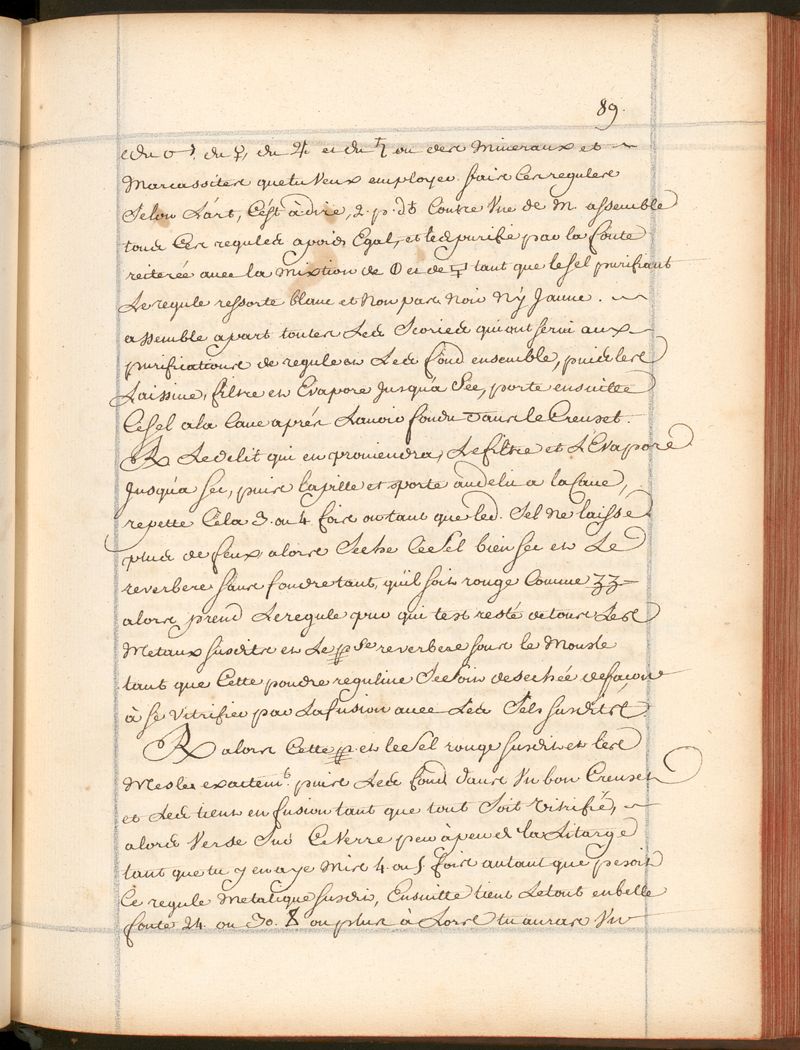 89.
et du ♂, du ♀, du ♃ et du ♄ ou des Mineraux et
Marcassites que tu Veux employer. fais Ces regules
Selon L'art, C'est à dire, 2. p. d'♁ Contre Vne de M. assemble
tous Ces regules a poids Egal, et les purifie par la fonte
reiterée auec la Mixtion de 🜕 et de 🜿 tant que le sel purifiant
Le regule ressorte blanc et Non pas Noir N'y Jaune.
assemble apart toutes Les Scories qui ont serui aux
purifications de regule et Les fond ensemble, puis les
Laissiue, filtre et Evapore Jusqu'a Sec, porte ensuitte
Ce sel a la Caue aprés L'auoir fondu dans le Creuset.
R Le delit qui en prouiendra, Le filtre et L'Evapore
Jusqu'a sec, puis la pille et porte au delit a la Caue,
repette Cela 3. ou 4 fois ou tant que led. Sel Ne laisse
plus de feux, alors Seche Ce Sel bien sec et Le
reverbere sans fondre tant, qu'il soit rouge Comme
alors prend Le regule pur qui t'est resté de tous Les
Metaux susdits et Le reverbere sous le Moufle
tant que Cette poudre reguline Se soit desechée de façon
à se Vitrifier par La fusion auec Les Sels susdits.
R alors Cette p. et le Sel rouge susdit et les
Mesles exactemt. puis Les fond dans Vn bon Creuset
et Les tient en fusion tant que tout Soit Vitrifié,
alors Verse Sur Ce Verre peu à peu de la Litarge
tant que tu y en aye Mis 4. ou 5 fois autant que pesoit
Ce regule Metalique susdit, Ensuitte tient Le tout en belle
fonte 24. ou 30. ou plus à Lors tu auras Vn